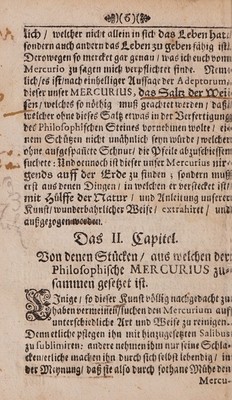 (6)
lich/ welcher nicht allein in sich das Leben hat/
sondern auch andern das Leben zu geben fähig ist.
Derowegen so mercket gar genau/ was ich euch vom
Mercurio zu sagen mich verpflichtet finde. Nem-
lich/ es ist/ nach einhelliger Aussage der Adeptorum,
dieser unser MERCURIUS, das Saltz der Wei-
sen/ welches so nöthig muß geachtet werden/ daß/
welcher ohne dieses Saltz etwas in der Verfertigung
des Philosophischen Steines vornehmen wolte/ ei-
nem Schützen nicht unähnlich seyn würde/ welcher
ohne aufgespañter Schnur/ die Pfeile abzuschiessen
suchete: Und dennoch ist dieser unser Mercurius nir-
gends auff der Erde zu finden; sondern muß
erst aus denen Dingen/ in welchen er verstecket ist/
mit Hülffe der Natur/ und Anleitung unserer
Kunst/ wunderbahrlicher Weise/ extrahiret/ und
außgezogen werden.
Das II. Capitel.
Von denen Stücken/ aus welchen der
Philosophische MERCURIUS zu-
sammen gesetzt ist.
Einige/ so dieser Kunst völlig nachgedacht zu
haben vermeinen/ suchen den Mercurium auff
unterschiedliche Art und Weise zu reinigen.
Denn etliche pflegen ihn mit hinzugesetzten Salibus
zu sublimiren: andere nehmen ihm nur seine Schla-
cken/ etliche machen ihn durch sich selbst lebendig/ in
der Meynung/ daß sie also durch sothane Mühe den
Mercu-